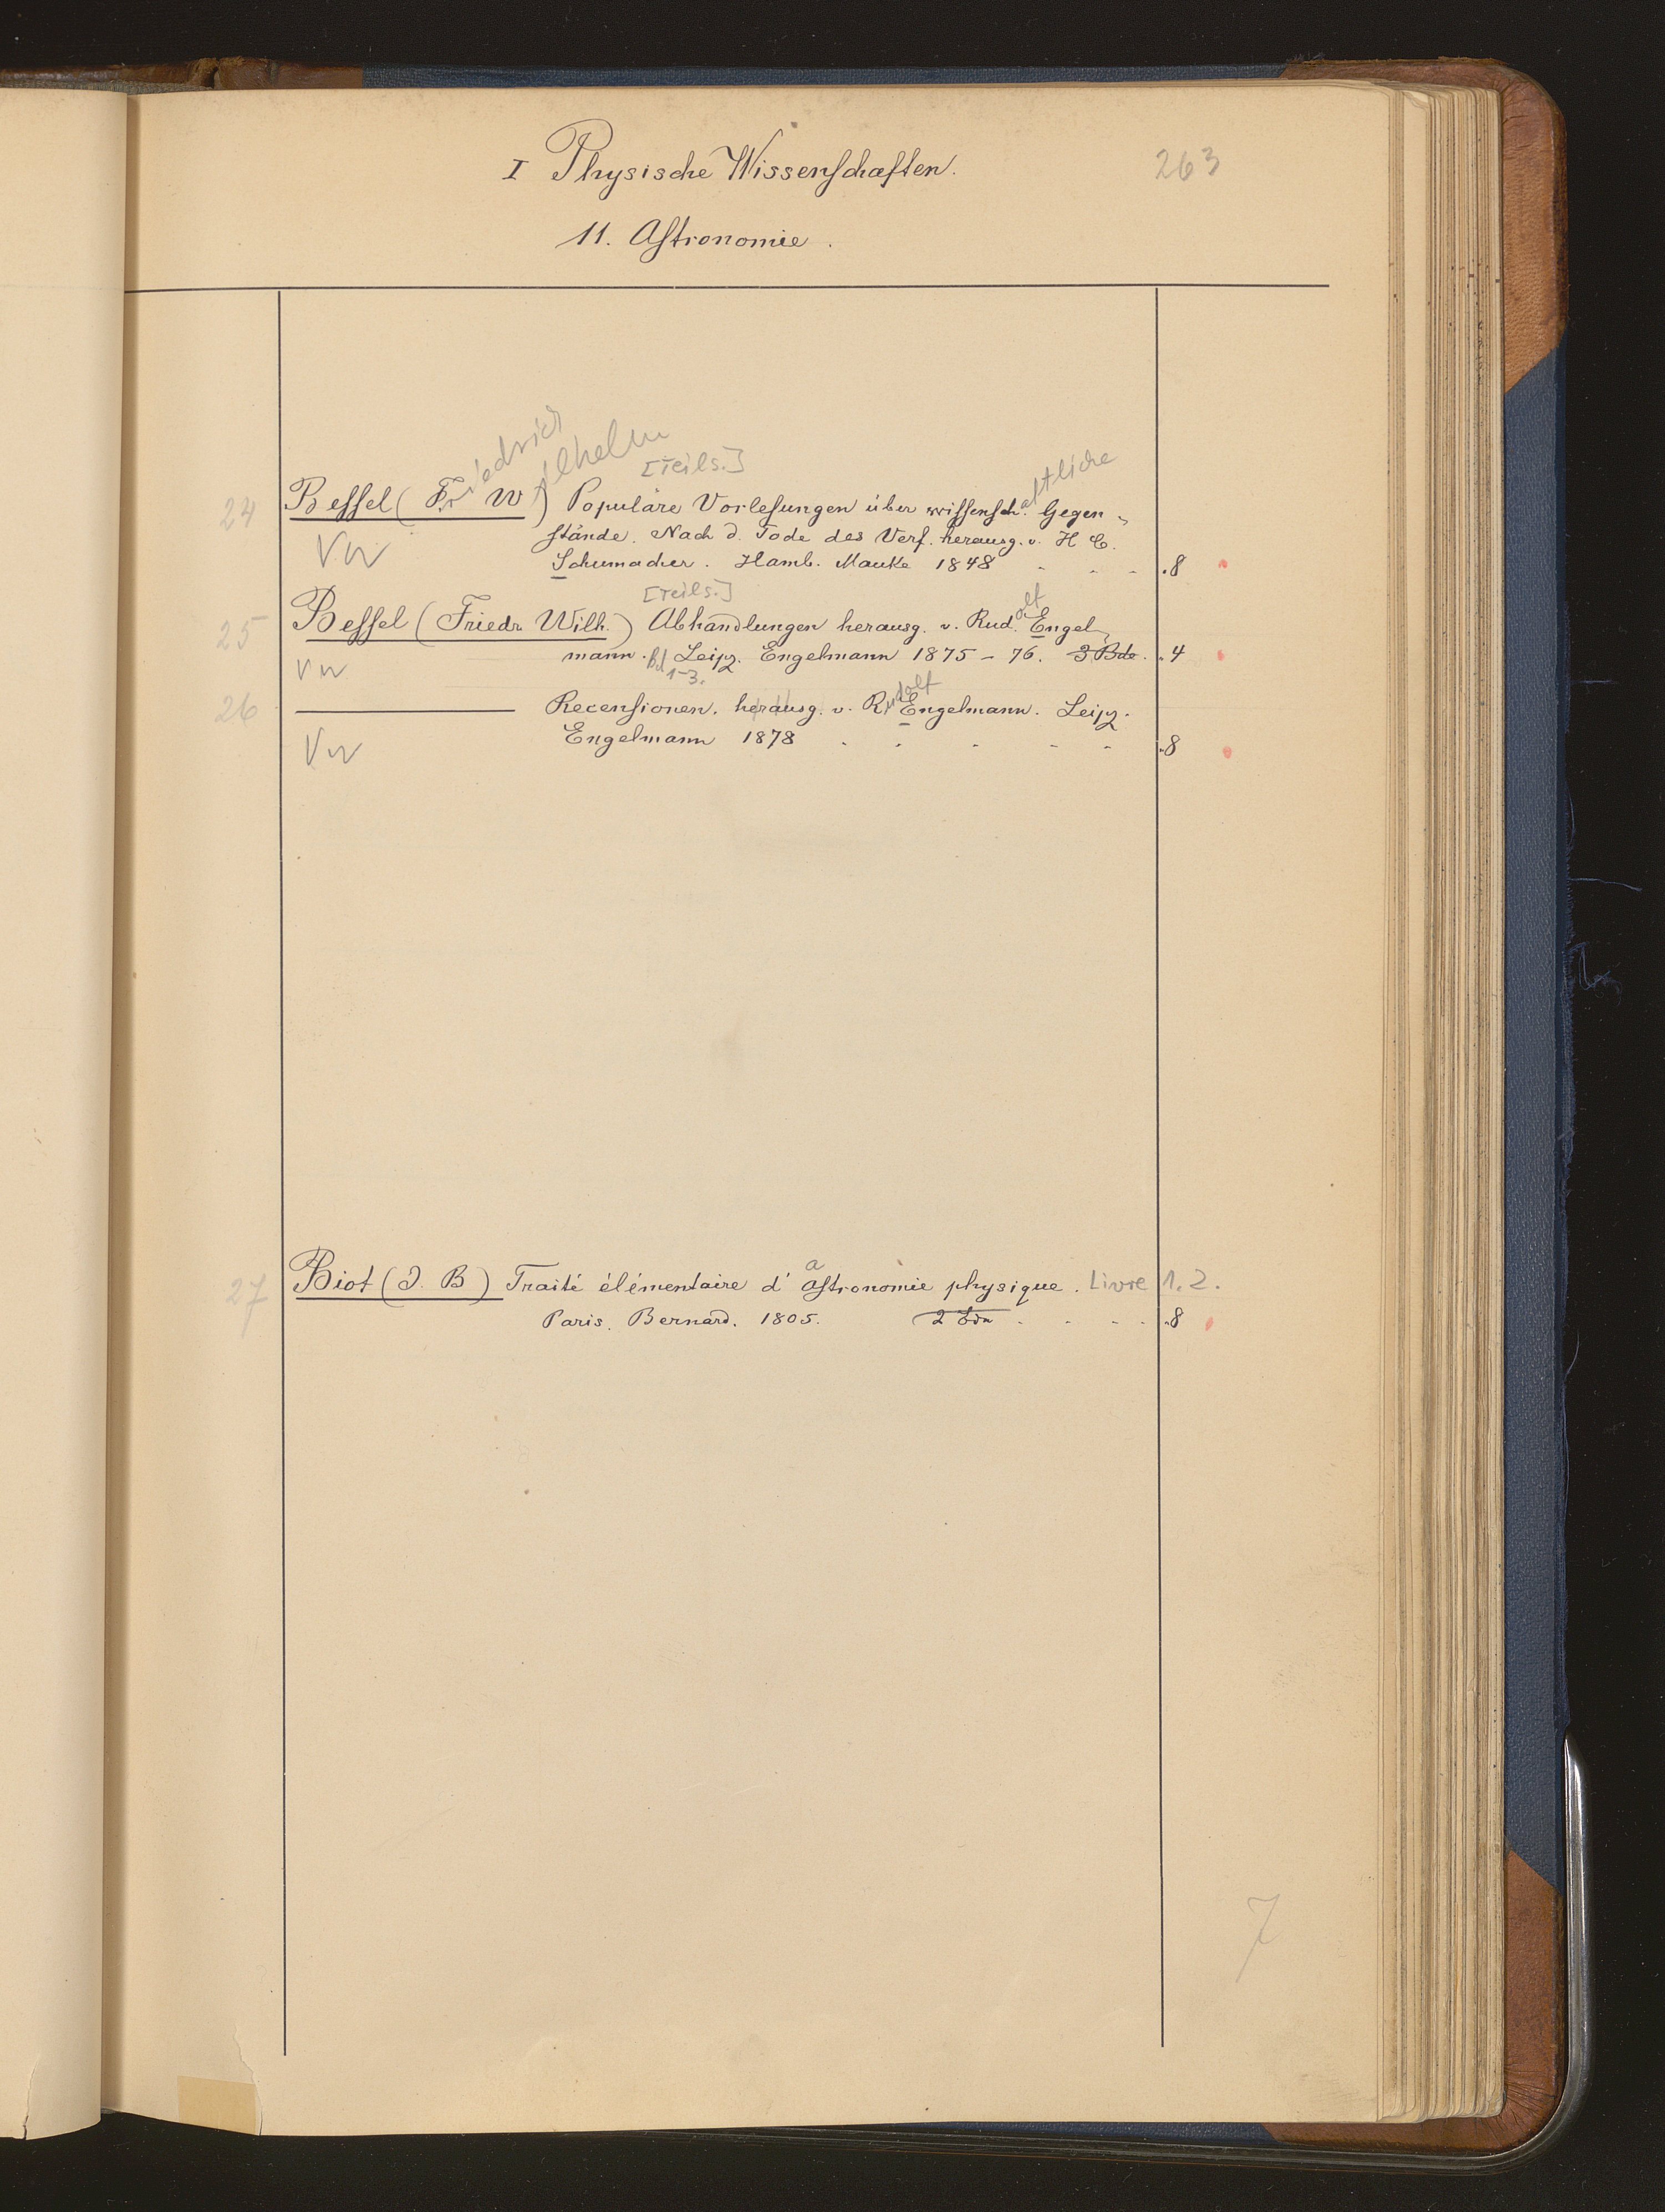 I Physische Wissenschaften. 263
11. Astronomie.
Friedrich
Wilhelm
[Teils.] aftliche
24 Bessel (Fr. W) Populäre Vorlesungen über wissensch. Gegen-
stände. Nach d. Tode des Verf. herausg. v. H C.
Schumacher. Hamb. Mauke 1848 - - - .8
[Teils.] olf
25 Bessel (Friedr Wilh.) Abhandlungen herausg. v. Rud. Engel-
mann. Bd Leipz. Engelmann 1875-76. 3 Bde. .4
1-3.
udolf
26 Recensionen. herausg. v. R. Engelmann. Leipz.
Engelmann 1878 - - - - - .8
a
27 Biot (J. B) Traité élémentaire d'astronomie physique. Livre 1.2.
Paris. Bernard. 1805. 2 Bde - - - - .8
7